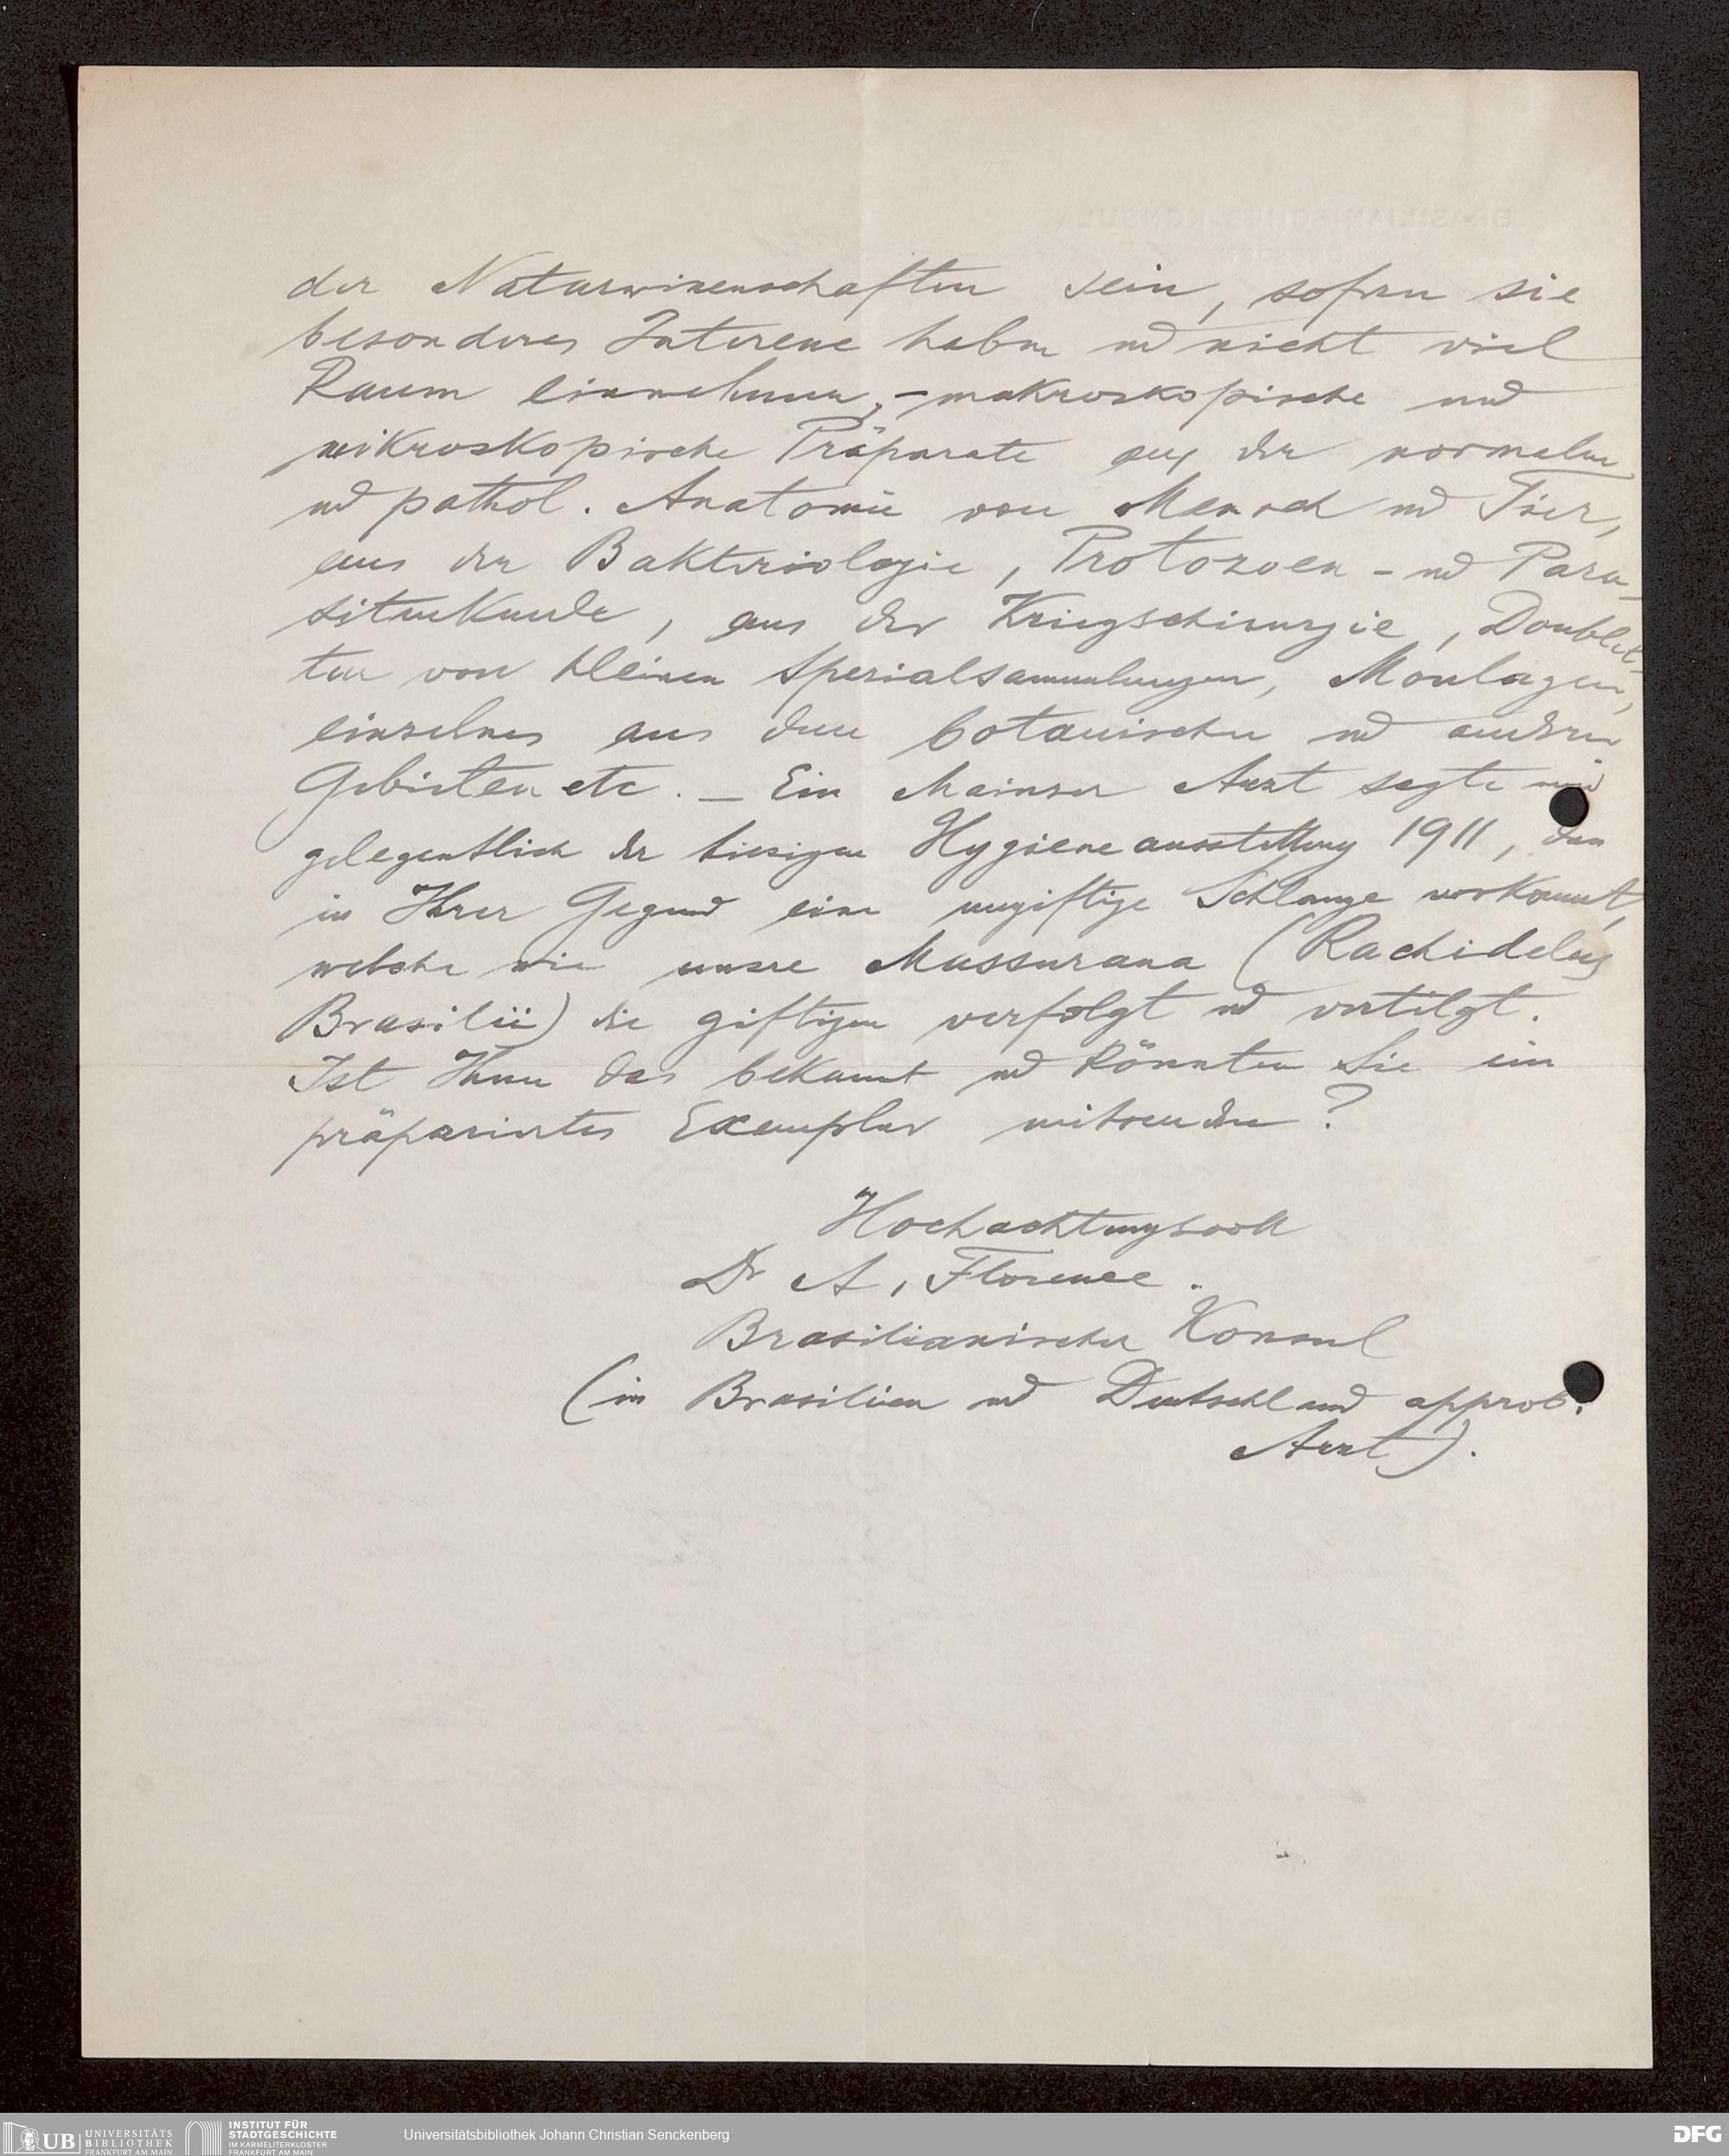 der Naturwissenschaften sein, sofern sie
besonderes Interesse haben und nicht viel
Raum einnehmen, - makroskopische und
mikroskopische Präparate aus der normalen
und pathol. Anatomie von Mensch und Tier,
aus der Bakteriologie, Protozoen- und Para-
sitenkunde, aus der Kriegschirurgie, Doublet-
ten von kleinen Spezialsammlungen, Moulagen,
einzelnes aus dem botanischen und anderen
Gebieten etc. - Ein Mainzer Arzt sagte mir
gelegentlich der hiesigen Hygieneausstellung 1911, dass
in Ihrer Gegend eine ungiftige Schlange vorkommt,
welche wie unsere Mussurana (Rachidelus
Brasilii) die giftigen verfolgt und vertilgt.
Ist Ihnen das bekannt und könnten Sie ein
präpariertes Exemplar mitsenden?
Hochachtungsvoll
Dr A. Florence.
Brasilianischer Konsul
(in Brasilien und Deutschland approb.
Arzt).
UB UNIVERSITÄTS
BIBLIOTHEK
FRANKFURT AM MAIN
INSTITUT FÜR
STADTGESCHICHTE
IM KARMELITERKLOSTER
FRANKFURT AM MAIN
Universitätsbibliothek Johann Christian Senckenberg
DFG